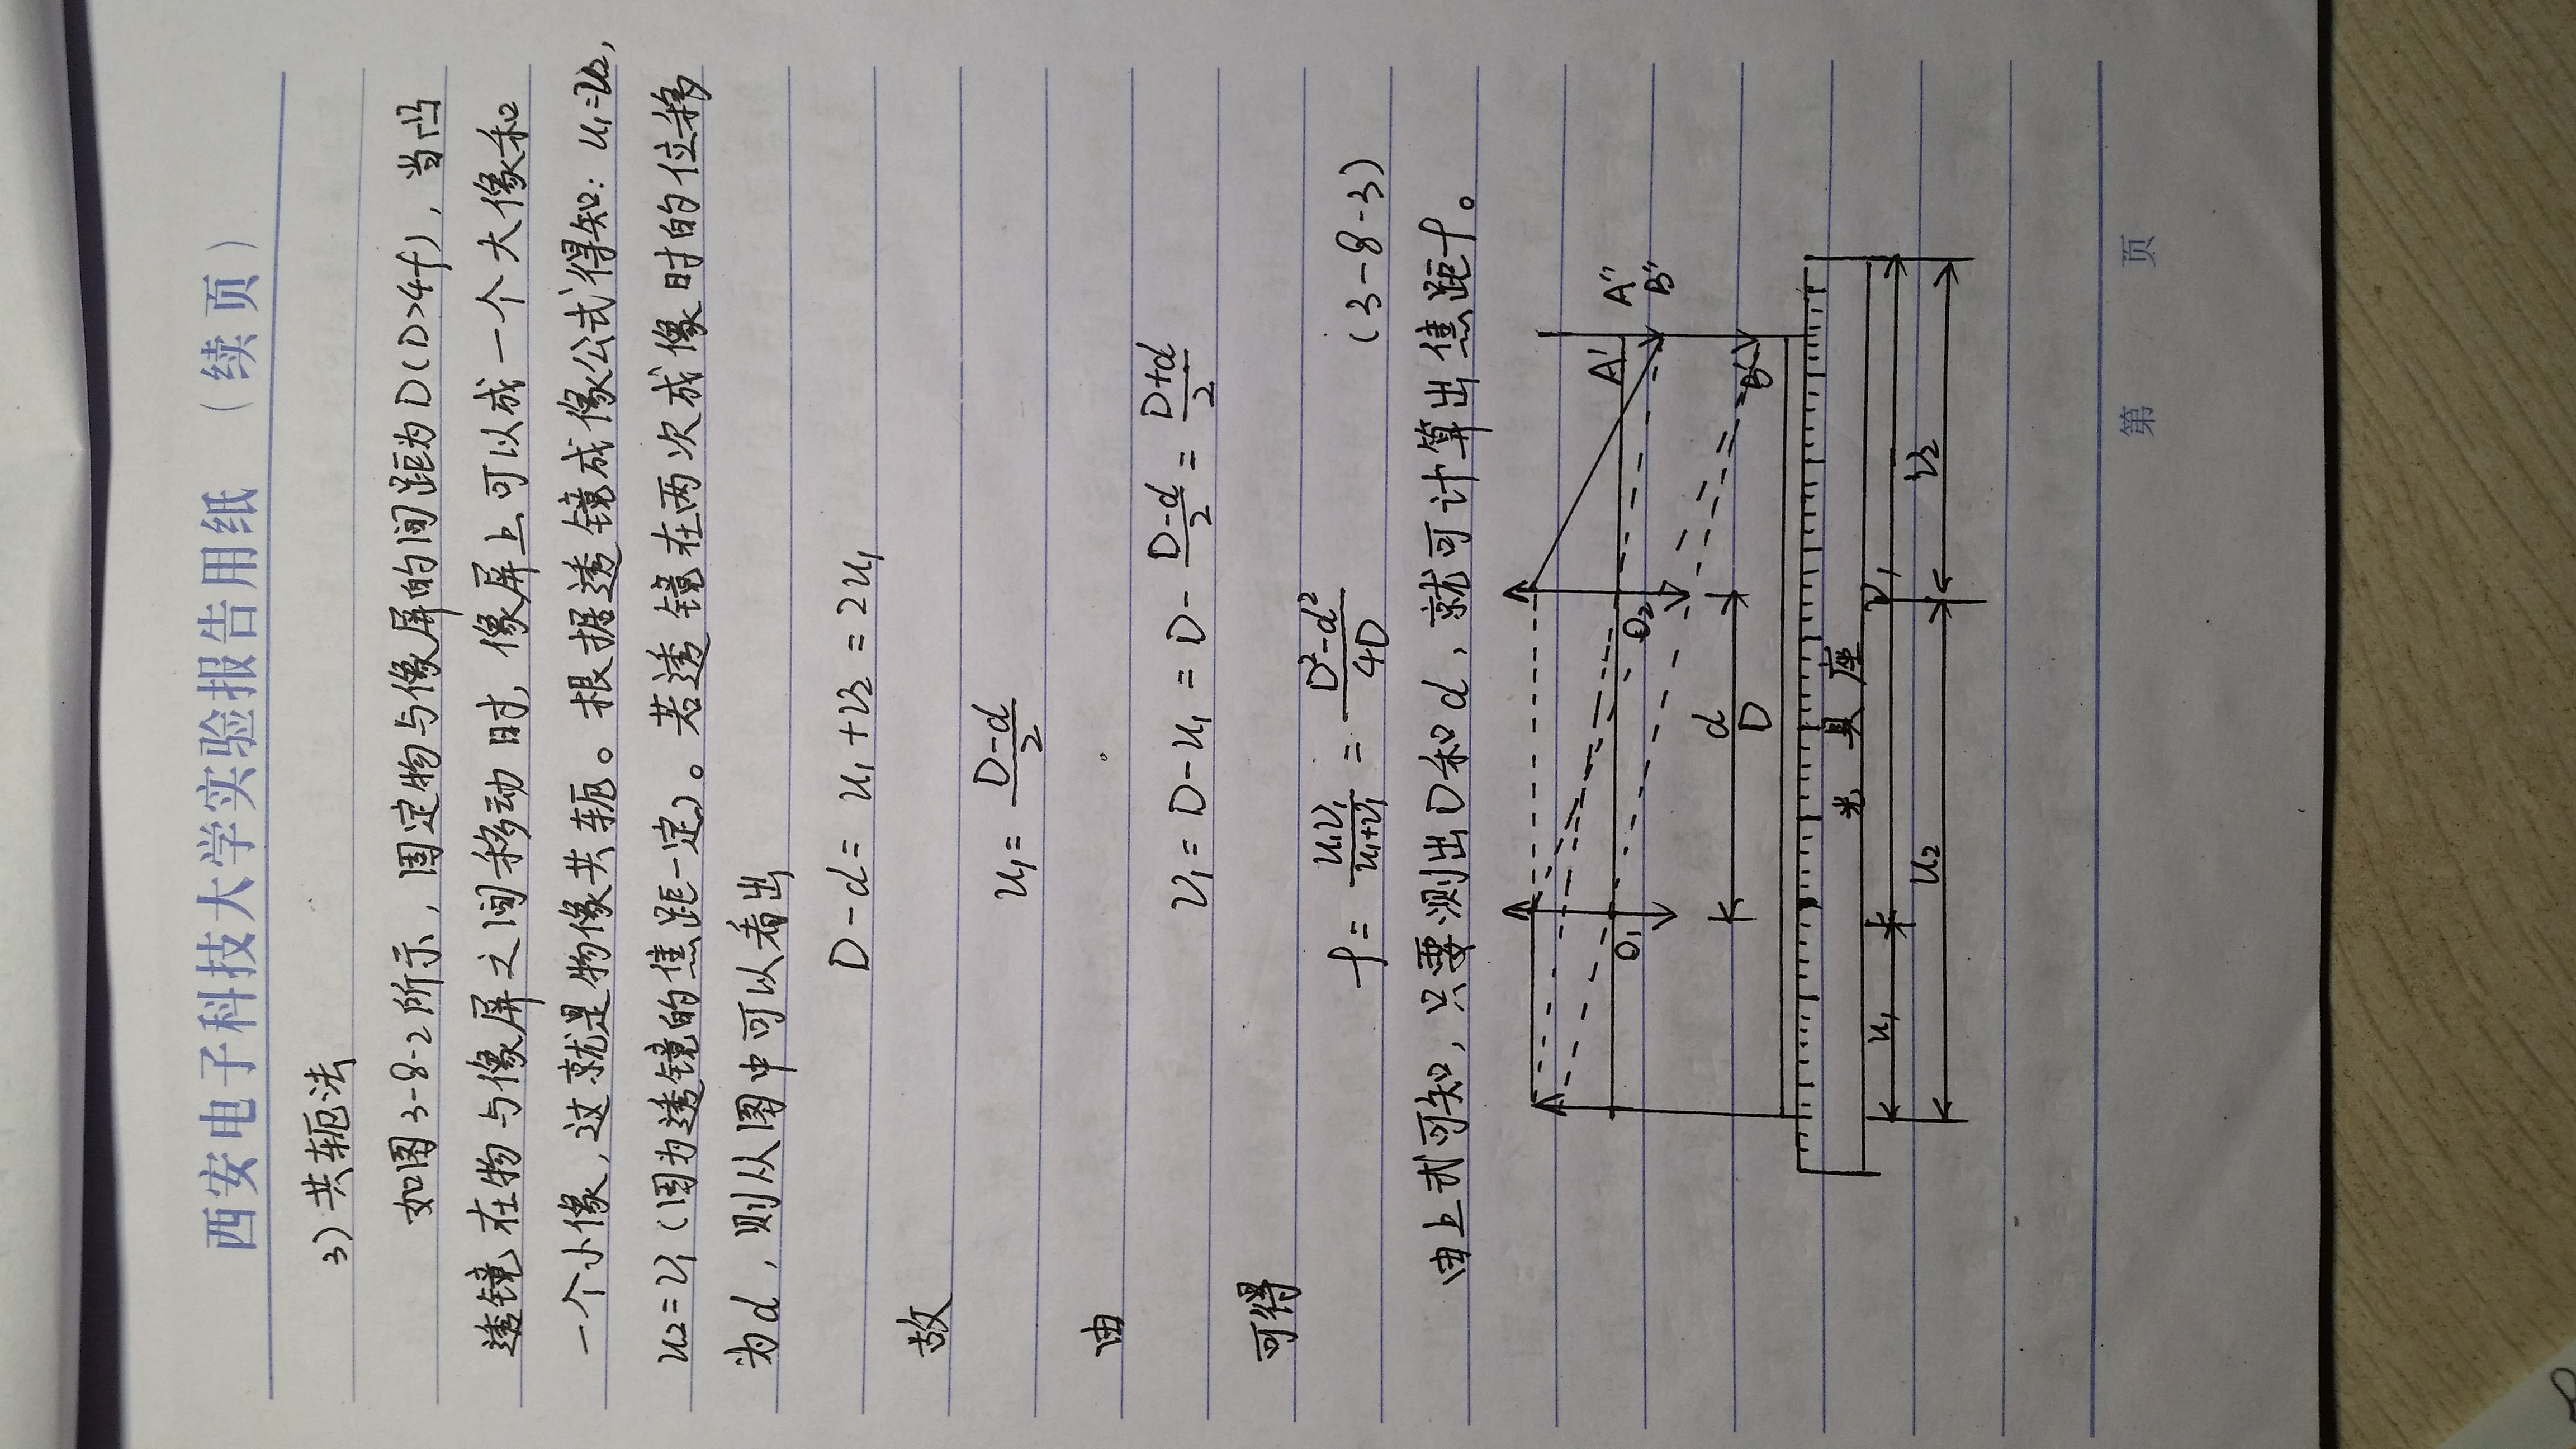 西安电子科技大学实验报告用纸（续页）
3）共轭法
如图3-8-2所示，固定物与像屏的间距为D(D>4f)，当凸
透镜在物与像屏之间移动时，像屏上可以成一个大像和
一个小像，这就是物像共轭。根据透镜成像公式得知：u₁=v₂，
u₂=v₁（因为透镜的焦距一定）。若透镜在两次成像时的位移
为d，则从图中可以看出
D-d=u₁+v₂=2u₁
故
u₁=(D-d)/2
由
v₁=D-u₁=D-(D-d)/2=(D+d)/2
可得
f=u₁v₁/(u₁+v₁)=(D²-d²)/4D (3-8-3)
由上式可知，只要测出D和d，就可计算出焦距f。
A' A"
O₁ O₂ B"
d
D B'
光具座
u₁ v₁
u₂ v₂
第 页